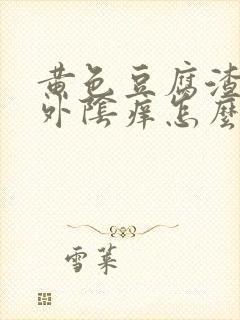 黄色豆腐渣
外陰痒怎麼
雪莱